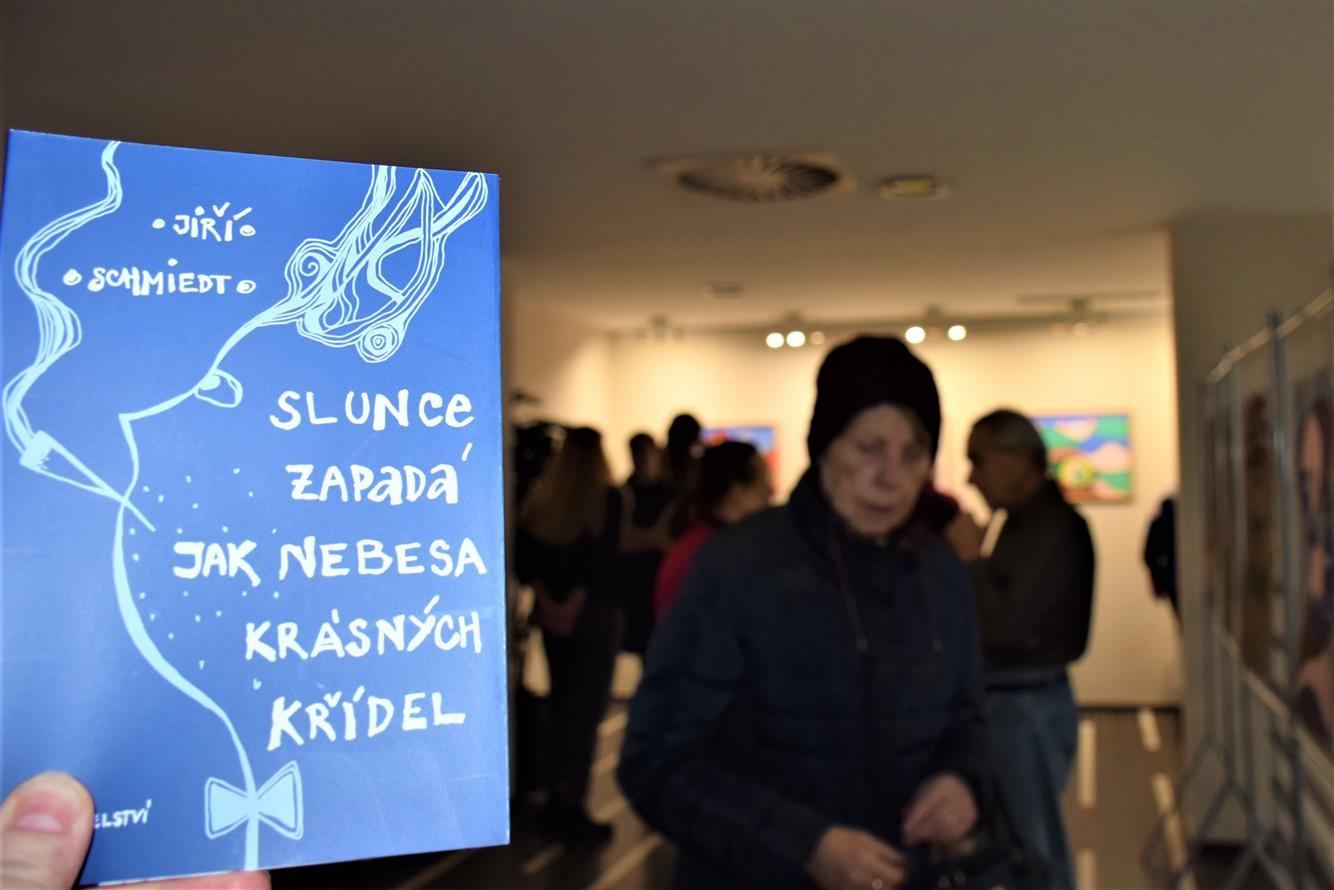 JIŘÍ
SCHMIEDT
SLUNCE
ZAPADÁ
JAK NEBESA
KRÁSNÝCH
KŘÍDEL